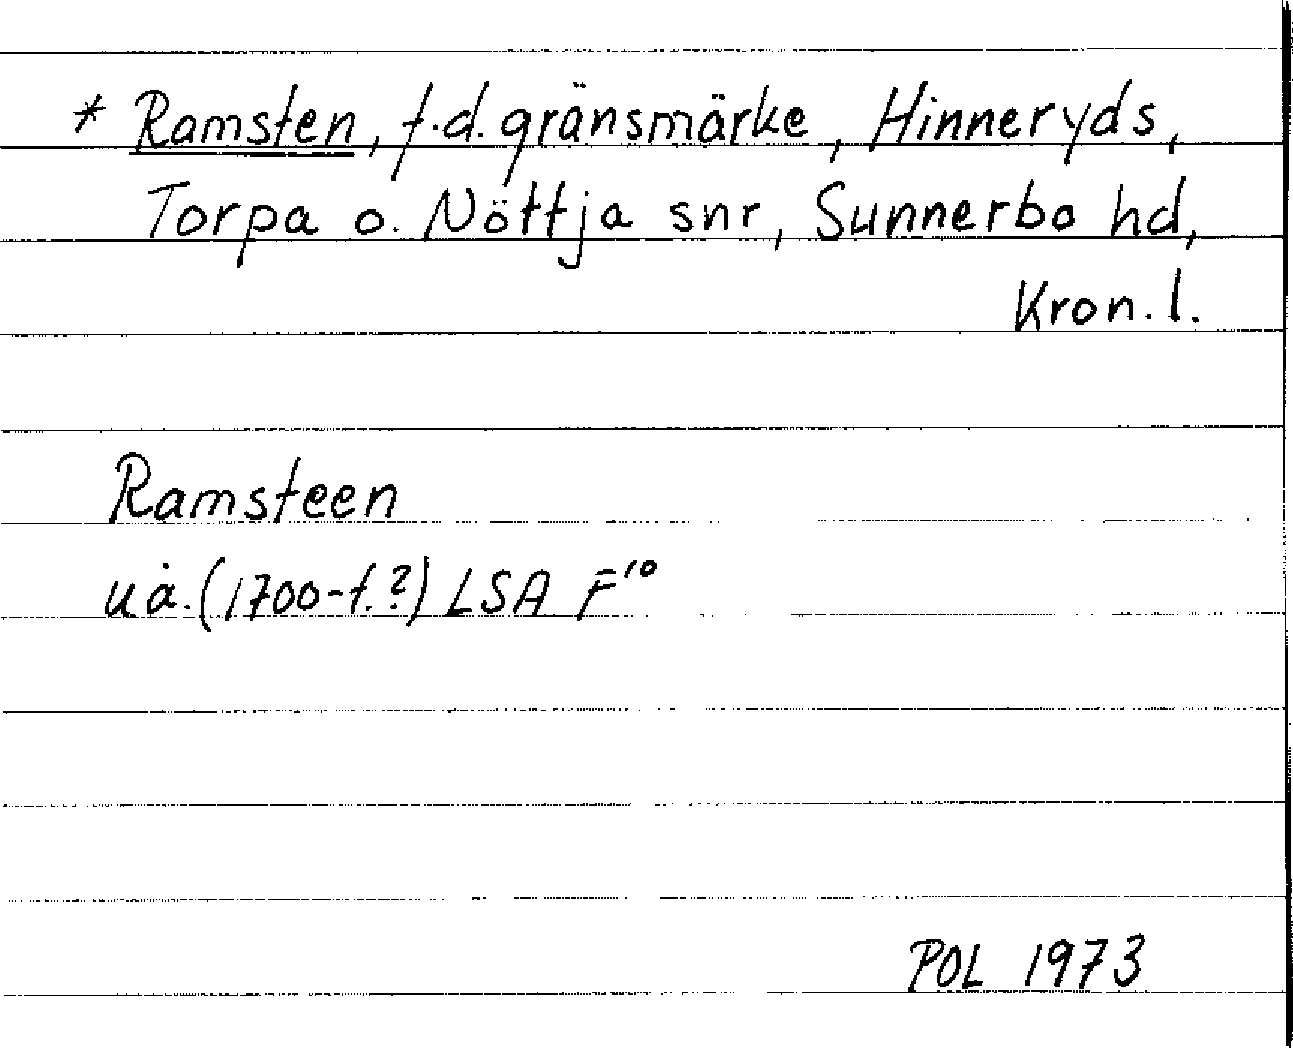 * Ramsten, f.d. gränsmärke, Hinneryds,
Torpa o. Nöttja snr, Sunnerbo hd,
Kron. l.
Ramsteen
u å. (1700-t.?) LSA F¹⁰
POL 1973